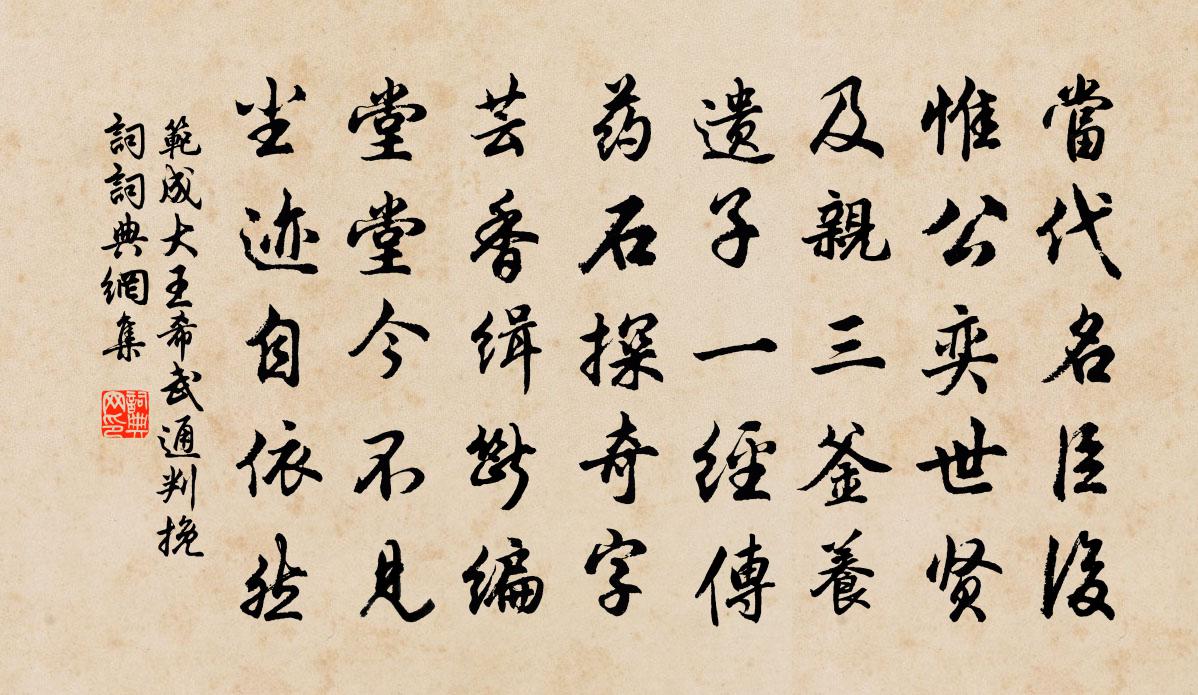 當代名臣後
惟公奕世贤
及親三釜養
遗子一經傳
药石探奇字
芸香缉斷编
堂堂今不見
坐迹自依然
範成大王希武通判挽
詞詞典網集
詞典
网印